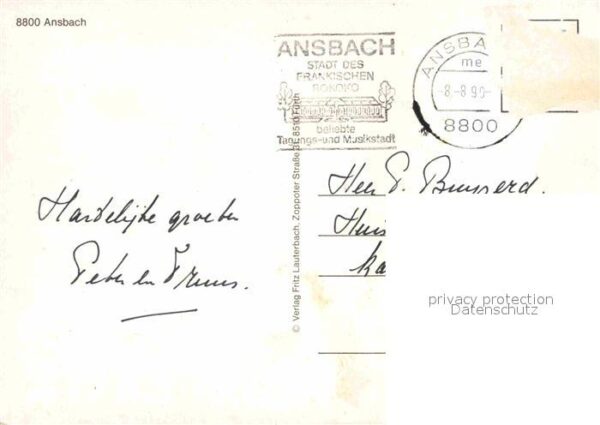 8800 Ansbach
ANSBACH
STADT DES
FRÄNKISCHEN
ROKOKO
beliebte
Tagungs- und Musikstadt
ANSBA
me
-8.-8.90-
8800
© Verlag Fritz Lauterbach, Zoppoter Straße 8510 Fürth
Hartelijke groeten
Peter en Truus.
Heer
privacy protection
Datenschutz